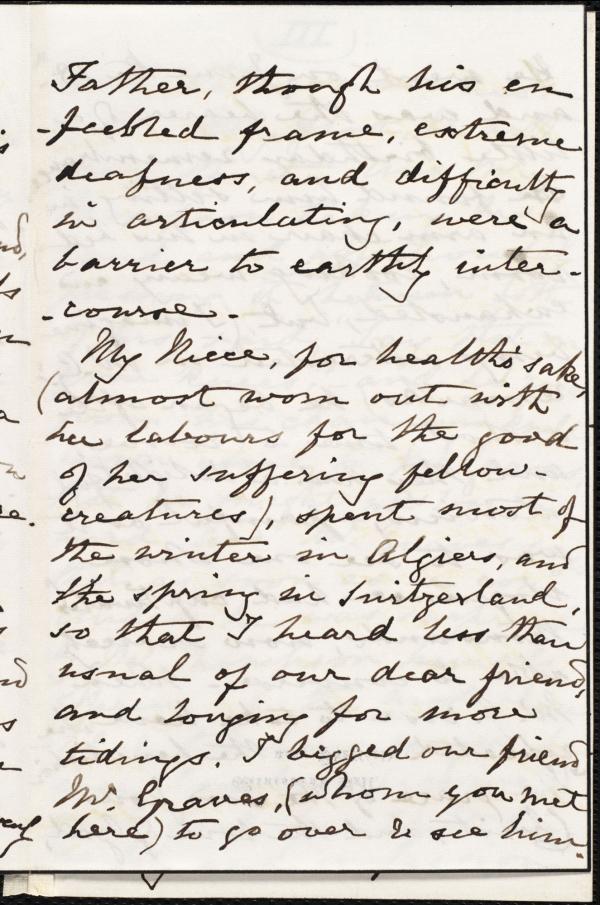 Father, though his en
-feebled frame, extreme
deafness, and difficulty
in articulating, were a
barrier to earthly inter-
-course.
My Niece, for health's sake,
(almost worn out with
her labours for the good
of her suffering fellow-
creatures), spent most of
the winter in Algiers, and
the spring in Switzerland,
so that I heard less than
usual of our dear friend,
and longing for more
tidings. I begged our friend
Mr. Graves, (whom you met
here) to go over & see him.